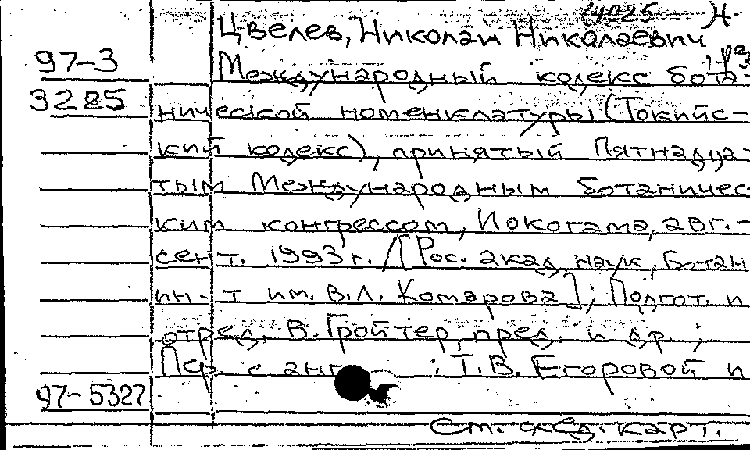 Цвелев, Николай Николаевич
97-3
Международный кодекс бота-
3285
нической номенклатуры (Токийс-
кий кодекс), принятый Пятнадца-
тым Международным ботаничес-
ким конгрессом, Иокогама, авг.-
сент. 1993 г. / [Рос. акад. наук, Ботан.
ин-т им. В.Л. Комарова]; Подгот. и
отред. В. Гройтер, пред. и др.;
Пер. с анг : Т.В. Егоровой и
97-5327
См. след. карт.